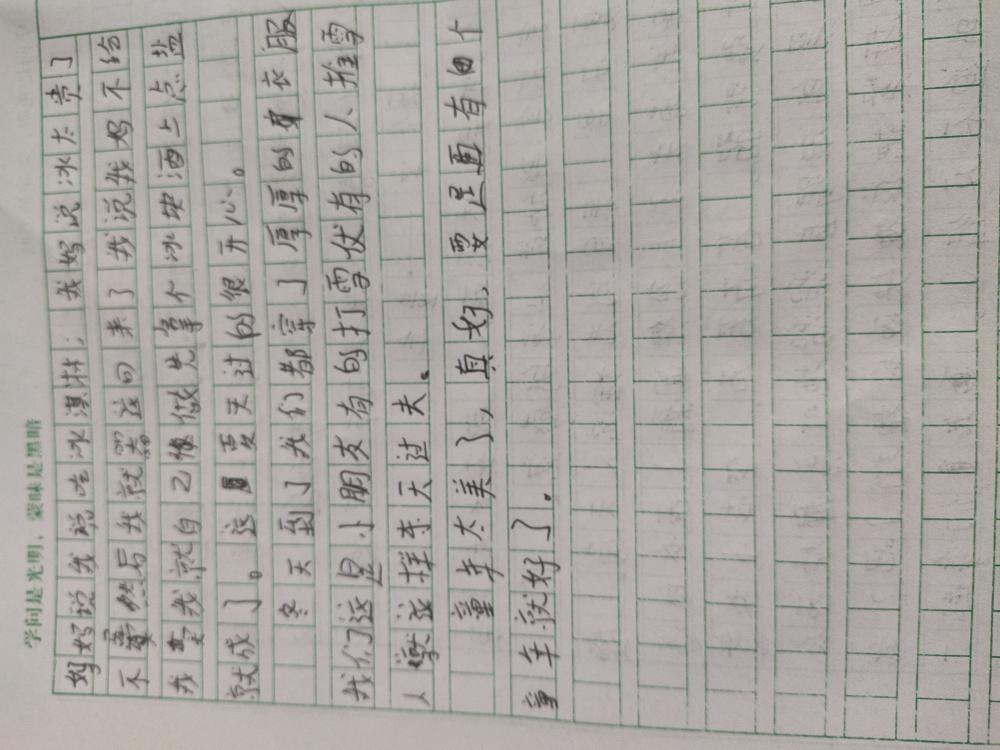 学问是光明，蒙昧是黑暗
妈妈说我说吃冰淇林；我妈说冰太贵了
不 然后我就哭 回来了我说我妈不给
我 我就自己 做先拿个冰块洒上点盐
就成了。这 夏天过的很开心。
冬天到了我们都穿了厚厚的 衣服
我们这是小朋友有的打雪伏有的人推雪
人 这样冬天过夫。
童年太美了，真好，要是直有 个
童年就好了.